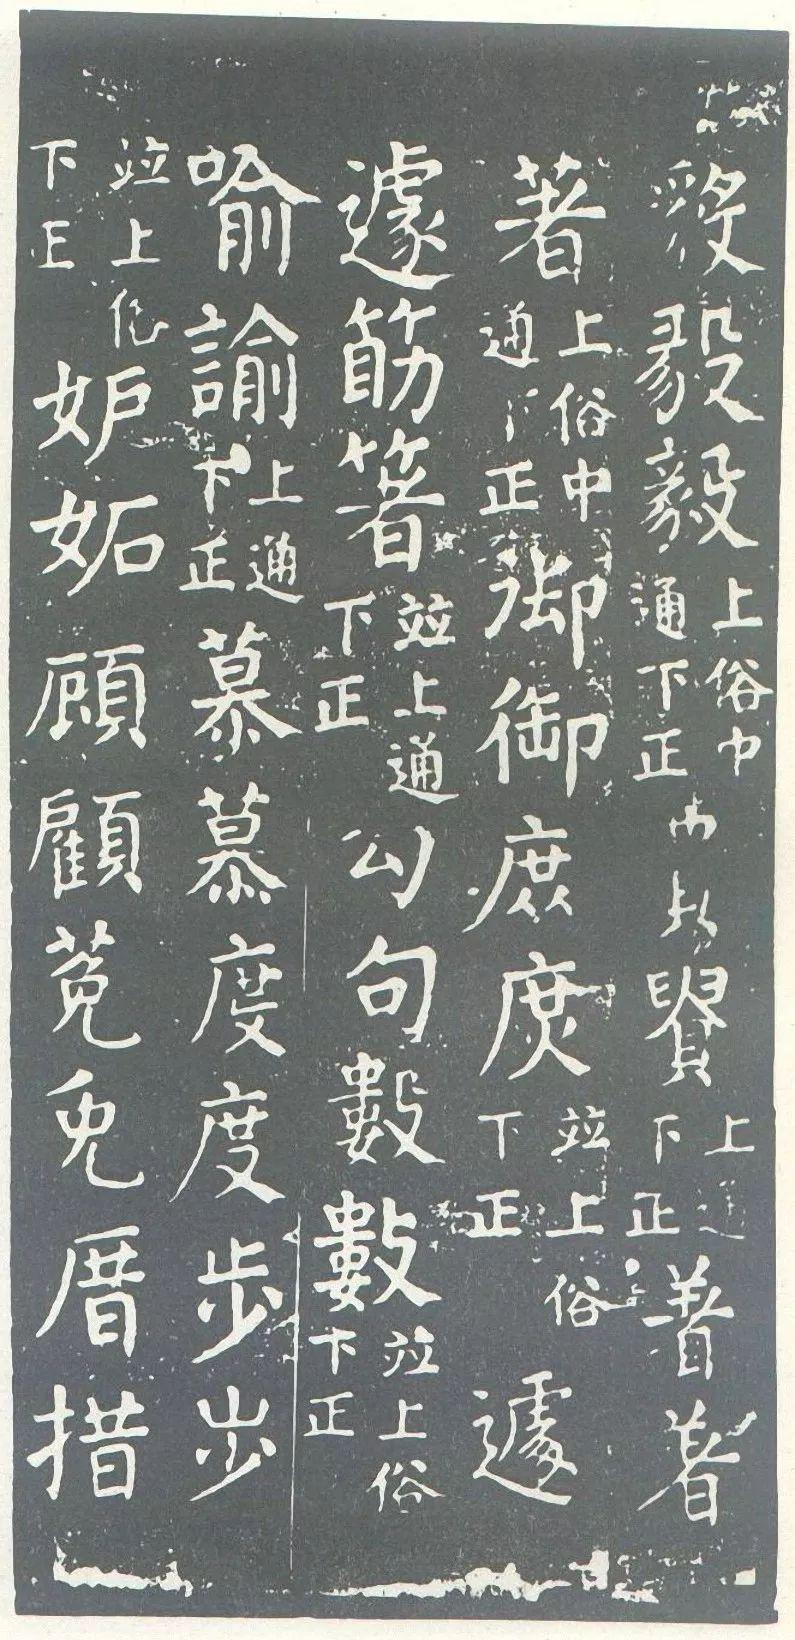 毅毅上俗中通下正上通下正着著
著上俗中通下正御御庶庶並上俗下正遽
遽筯箸並上通下正勾句數數並上俗下正
喻諭上通下正慕慕度度步步
並上俗下正妒妬顾顧菟兔厝措